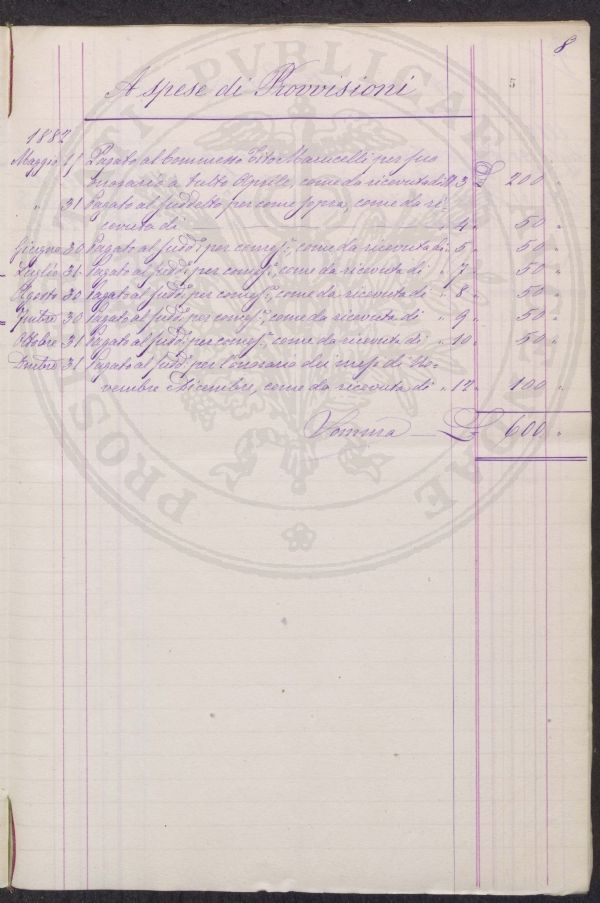 8
5
A spese di Provvisioni
1882
Maggio 15 Pagato al Commesso Tito Marucelli per suo
onorario a tutto Aprile, come da ricevuta di N. 3 £ 200 "
" 31 Pagato al suddetto per come sopra, come da ri-
cevuta di " 4 " 50 "
Giugno 30 Pagato al sudd. per come s., come da ricevuta di " 5 " 50 "
Luglio 31 Pagato al sudd. per come s., come da ricevuta di " 7 " 50 "
Agosto 30 Pagato al sudd. per come s., come da ricevuta di " 8 " 50 "
7mbre 30 Pagato al sudd. per come s., come da ricevuta di " 9 " 50 "
Ottobre 31 Pagato al sudd. per come s., come da ricevuta di " 10 " 50 "
Xmbre 31 Pagato al sudd. per l'onorario dei mesi di No-
vembre Dicembre, come da ricevuta di " 12 " 100 "
Somma £ 600 "
PROSPERITATI PVBLICAE AVGENDAE